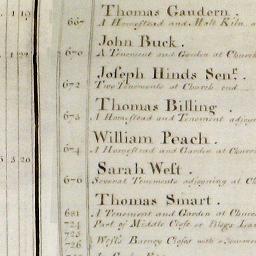 1 19
Thomas Gaudern.
667 A Homestead and Malt Kiln
John Buck.
1 22 670 A Tenement and Garden at Church
Joseph Hinds Senr.
672 Two Tenements at Church end
Thomas Billing
673 A Homestead and Tenement adjoyn
William Peach.
674 A Homestead and Garden at Church
3 20
Sarah West.
676 Several Tenements adjoyning at Ch
Thomas Smart.
681 A Tenement and Garden at Church
724 Part of Middle Close or
725
726 West's Barney Closes with a